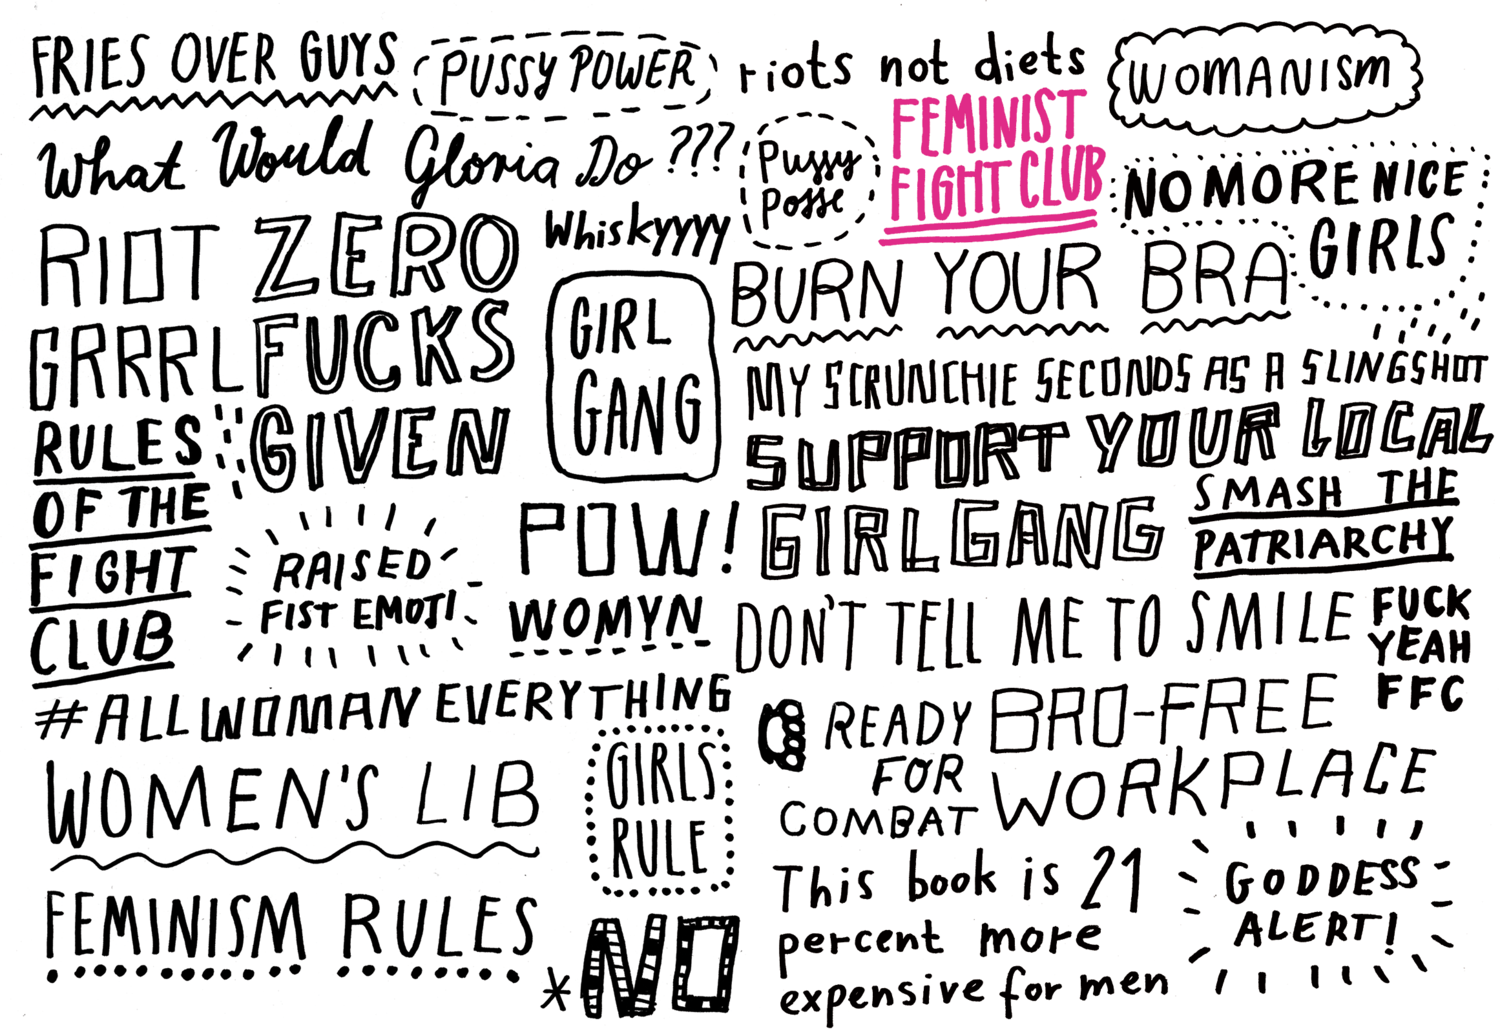 FRIES OVER GUYS
PUSSY POWER
riots not diets
WOMANISM
What Would Gloria Do ???
Pussy
Posse
FEMINIST
FIGHT CLUB
NO MORE NICE
GIRLS
RIOT
GRRRL
ZERO
FUCKS
GIVEN
Whiskyyyy
GIRL
GANG
BURN YOUR BRA
MY SCRUNCHIE SECONDS AS A SLINGSHOT
SUPPORT YOUR LOCAL
GIRL GANG
SMASH THE
PATRIARCHY
RULES
OF THE
FIGHT
CLUB
RAISED
FIST EMOJI
POW!
WOMYN
DON'T TELL ME TO SMILE
FUCK
YEAH
FFC
#ALLWOMAN EVERYTHING
READY
FOR
COMBAT
BRO-FREE
WORKPLACE
WOMEN'S LIB
GIRLS
RULE
This book is 21
percent more
expensive for men
GODDESS
ALERT!
FEMINISM RULES
*NO